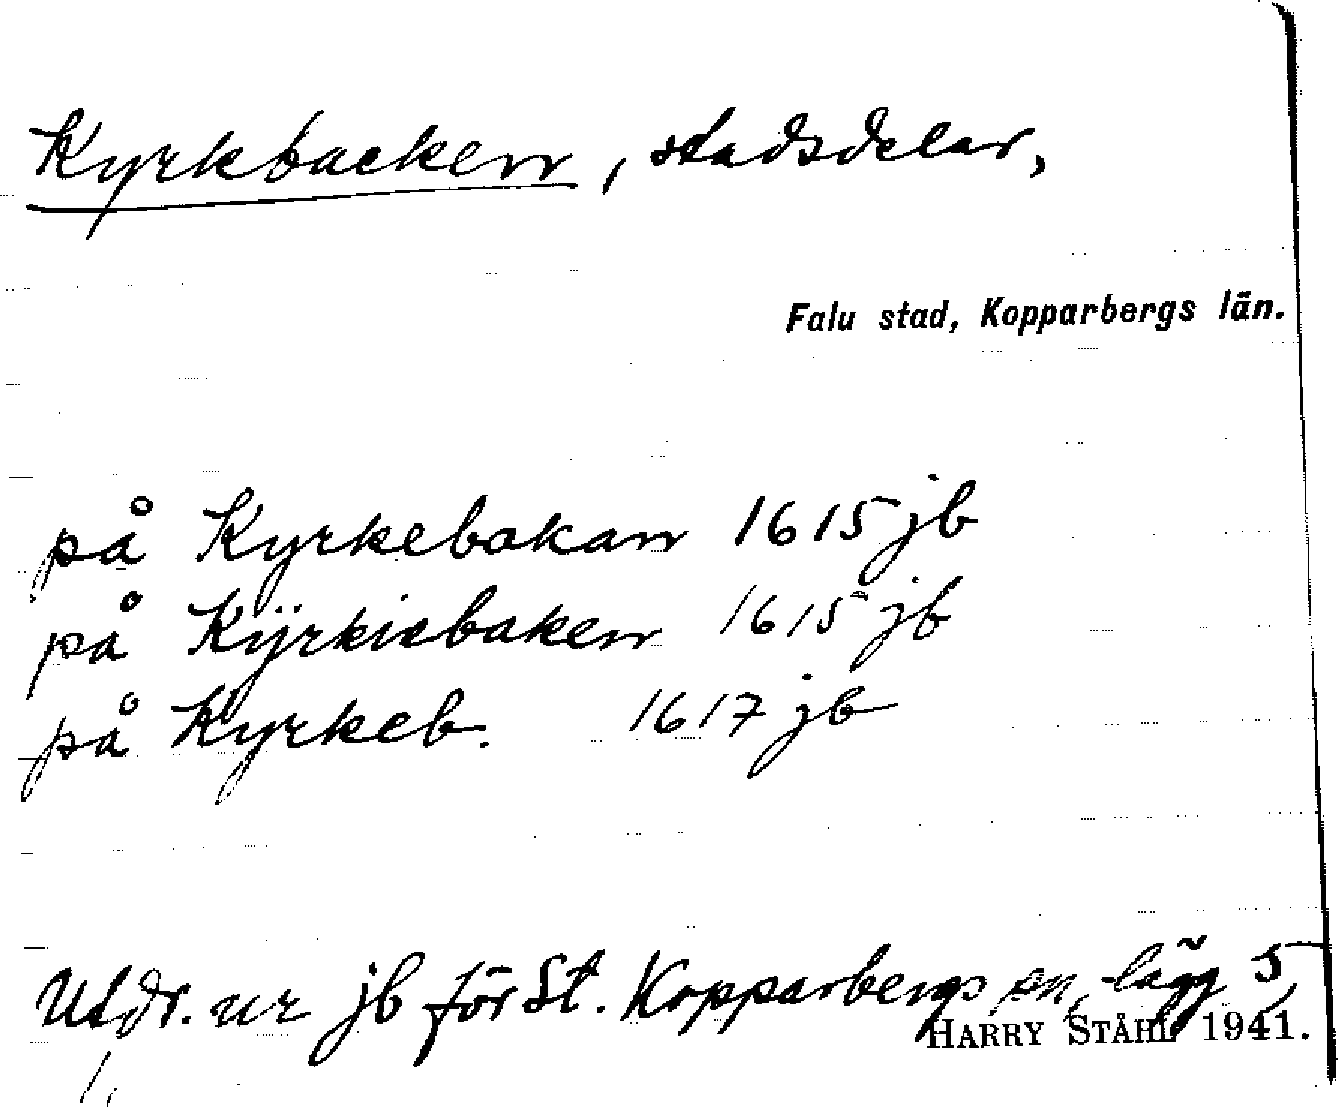 Kyrkbacken, stadsdelar,
Falu stad, Kopparbergs län.
på Kyrkebakan 1615 jb
på Kÿrkiebaken 1615 jb
på Kyrkeb. 1617 jb
Utdr. ur jb för St. Kopparbergs sn, lägg 5
HARRY STÅHL 1941.